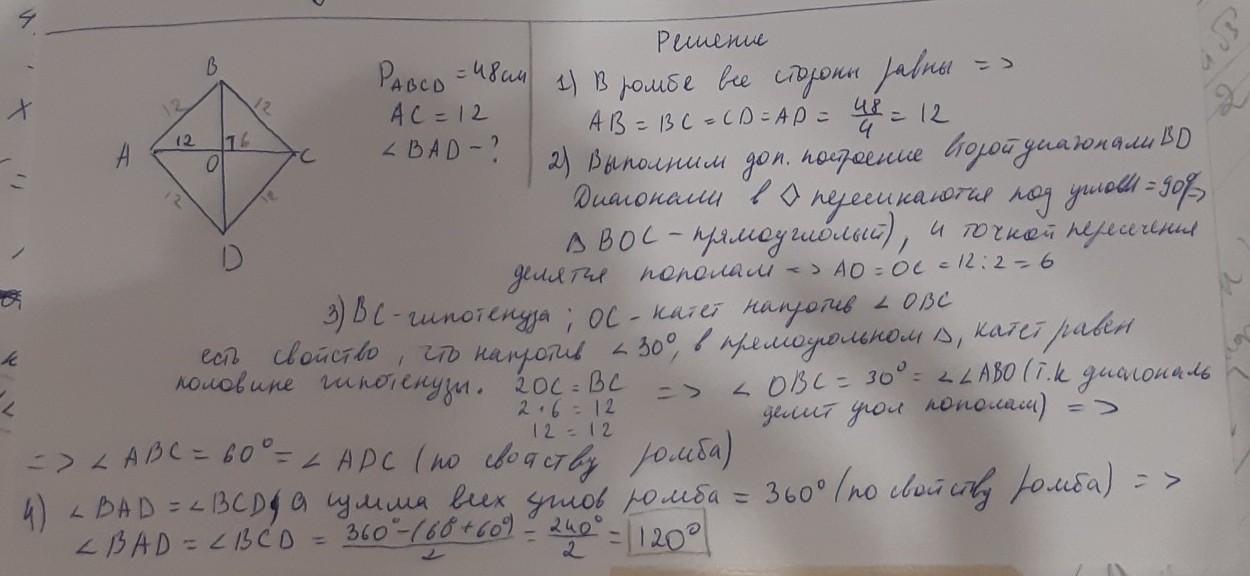 4.
Решение
B
12
12
A
12
6
C
O
12
12
D
P ABCD = 48 см
AC = 12
∠ BAD - ?
1) В ромбе все стороны равны =>
AB = BC = CD = AD = 48/4 = 12
2) Выполним доп. построение второй диагонали BD
Диагонали в ◇ пересикаются под углом = 90° =>
Δ BOC - прямоуглолый), и точкой пересечения
делятся пополам => AO = OC = 12 : 2 = 6
3) BC - гипотенуза ; OC - катет напротив ∠ OBC
есть свойство, что напротив ∠ 30°, в прямоугольном Δ, катет равен
половине гипотенузи. 2OC = BC => ∠ OBC = 30° = ∠∠ABO (т.к диагональ
2 · 6 = 12 делит угол пополам) =>
12 = 12
=> ∠ ABC = 60° = ∠ ADC (по свойству ромба)
4) ∠ BAD = ∠ BCD, а сумма всех углов ромба = 360° (по свойству ромба) =>
∠ BAD = ∠ BCD = 360° - (60° + 60°)/2 = 240°/2 = 120°